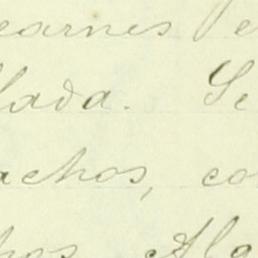 earnes
lada. Se
achos, co
hos Ala